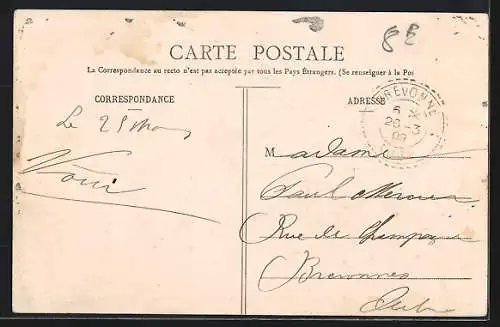 CARTE POSTALE
La Correspondance au recto n'est pas acceptée par tous les Pays Étrangers. (Se renseigner à la Pos
CORRESPONDANCE
ADRESSE
BREVONNE
6
26 -3
09
Le 25 Mars
Madame
Paul Mercier
Rue de Champagne
Brevonnes
Aube